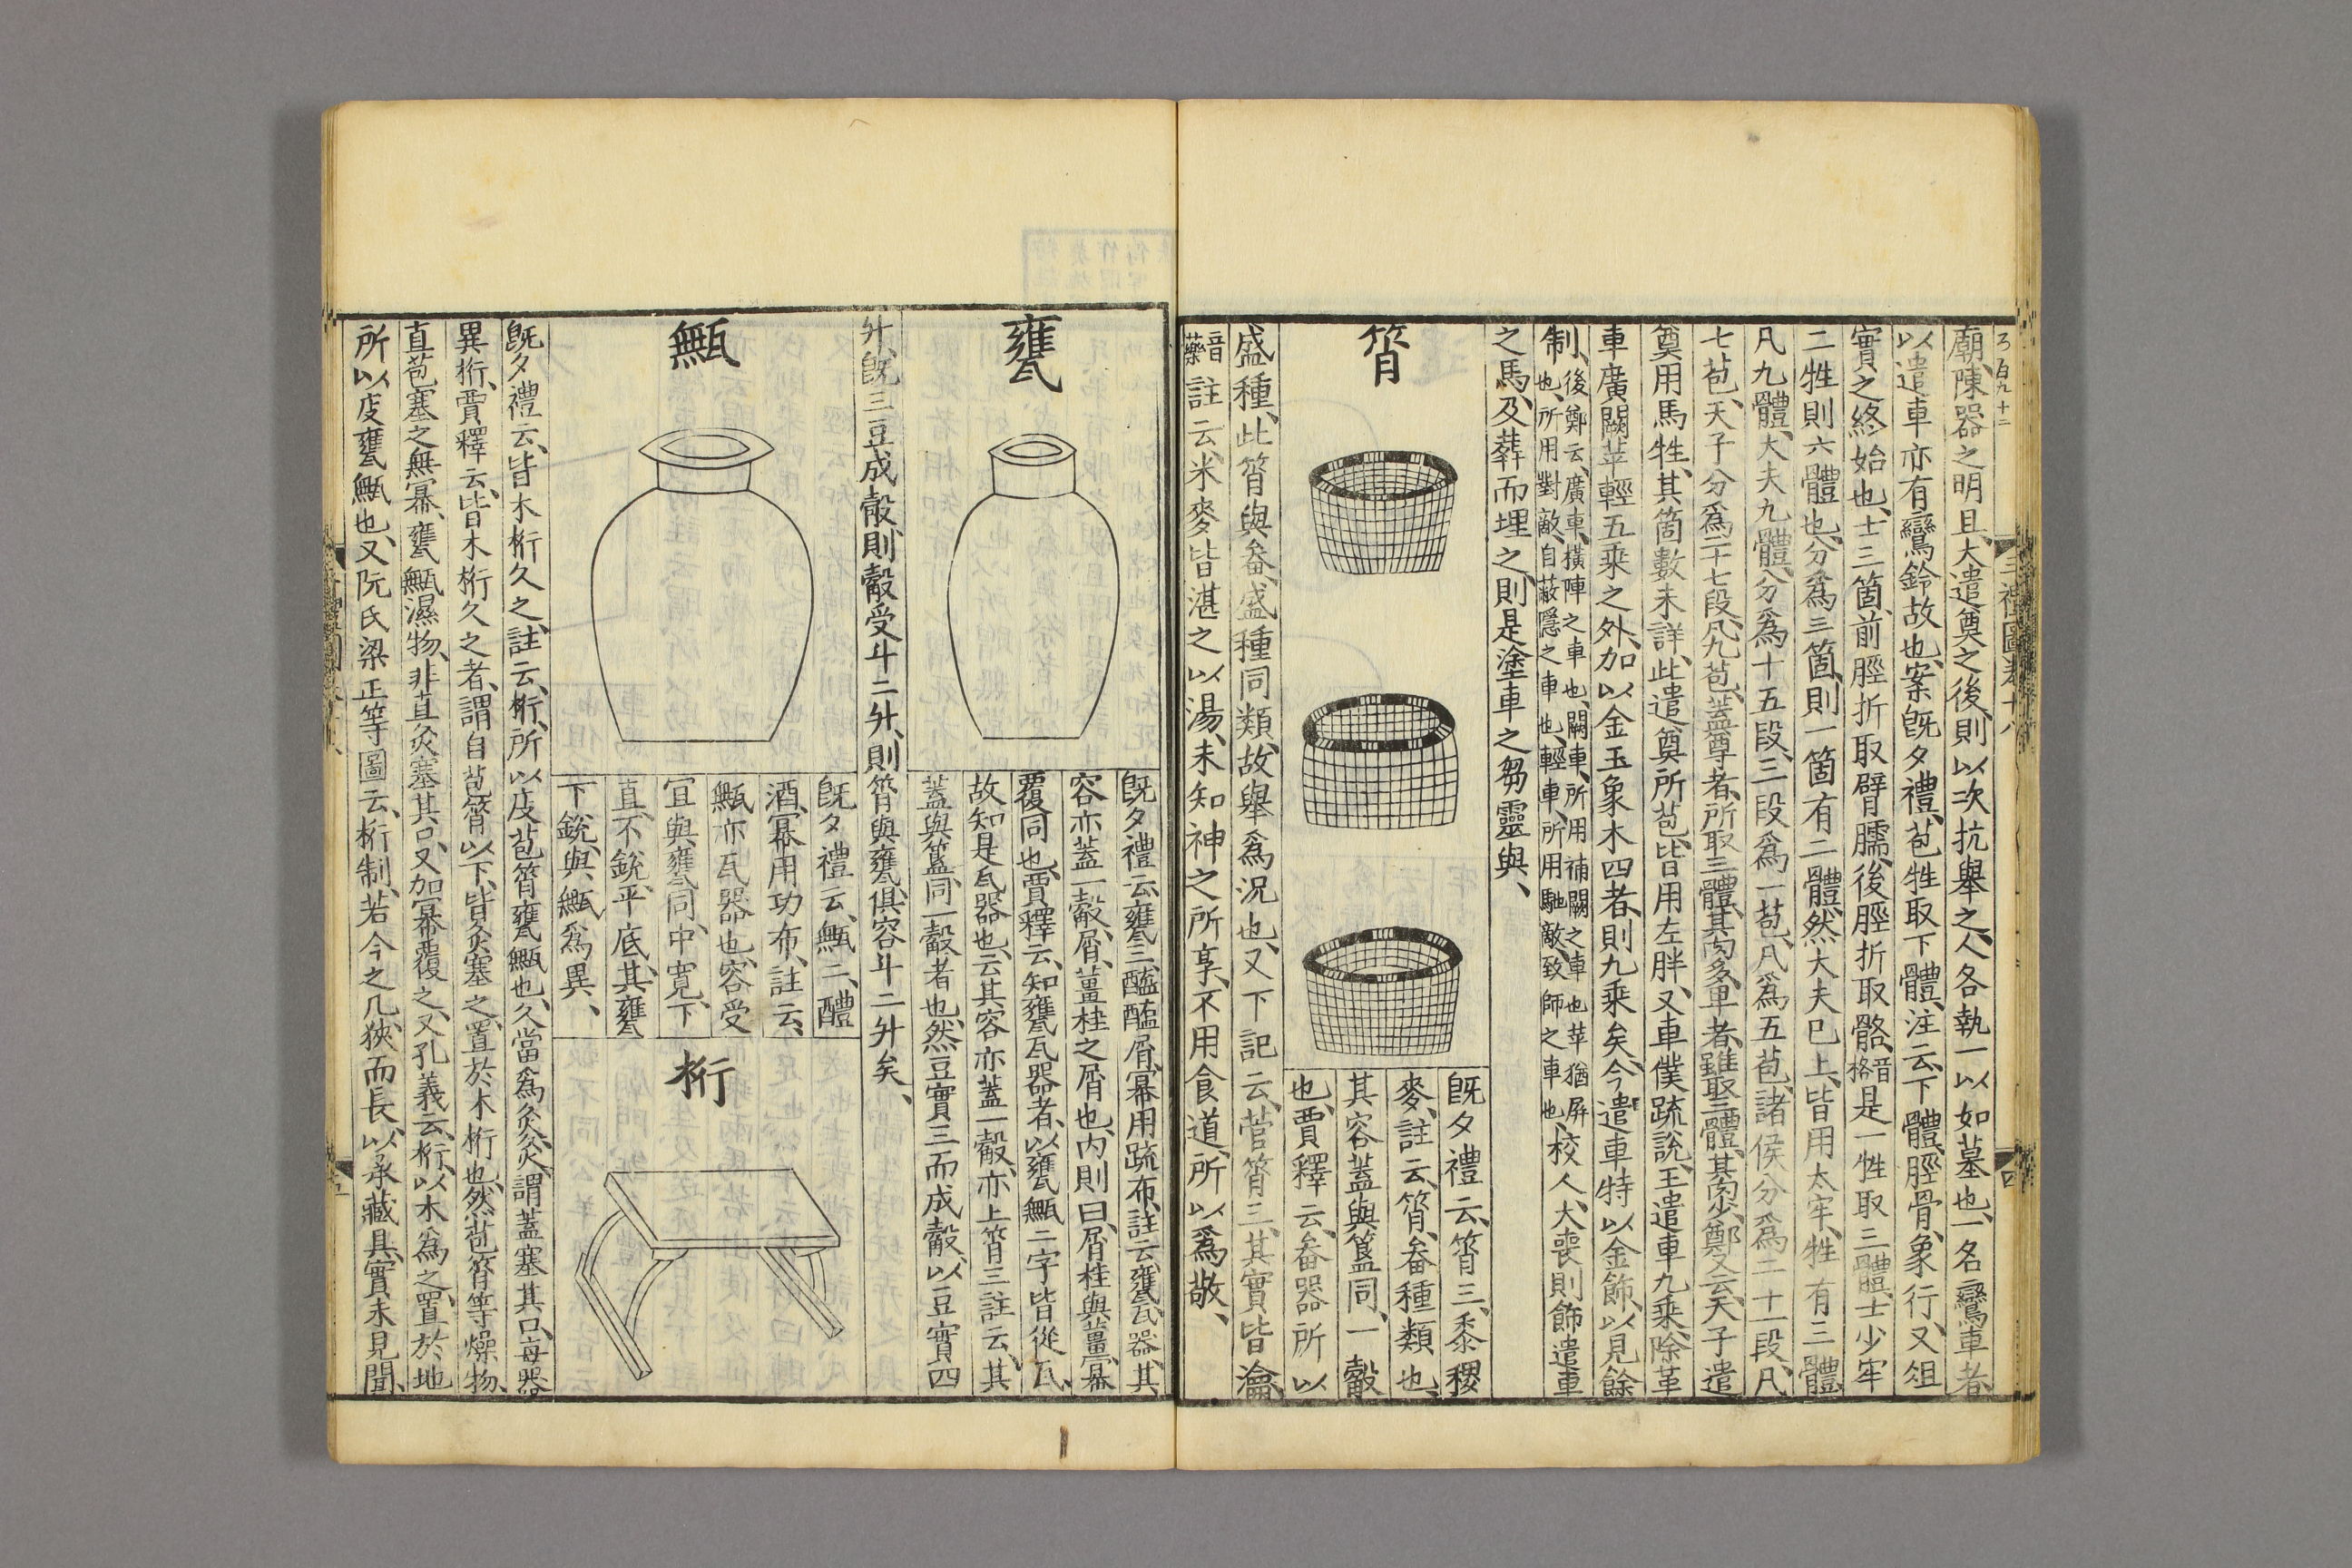 三禮圖卷十八
四
廟陳器之明旦大遣奠之後則以次抗舉之人各執一以如墓也一名鸞車者
以遣車亦有鸞鈴故也案旣夕禮苞牲取下體注云下體脛骨象行又俎
實之終始也士三箇前脛折取臂臑後脛折取骼音格是一牲取三體士少牢
二牲則六體也分爲三箇則一箇有二體然大夫已上皆用太牢牲有三體
凡九體大夫九體分爲十五段三段爲一苞凡爲五苞諸侯分爲二十一段凡
七苞天子分爲二十七段凡九苞蓋尊者所取三體其肉多卑者雖取三體其肉少鄭又云天子遣
奠用馬牲其箇數未詳此遣奠所苞皆用左胖又車僕疏說王遣車九乘除革
車廣闕苹輕五乘之外加以金玉象木四者則九乘矣今遣車特以金飾以見餘
制後鄭云廣車橫陣之車也闕車所用補闕之車也苹猶屏也所用對敵自蔽隱之車也輕車所用馳敵致師之車也校人大喪則飾遣車
之馬及葬而埋之則是塗車之芻靈與
筲
旣夕禮云筲三黍稷
麥註云筲畚種類也
其容蓋與簋同一觳
也賈釋云畚器所以
盛種此筲與畚盛種同類故舉爲況也又下記云菅筲三其實皆瀹
音藥註云米麥皆湛之以湯未知神之所享不用食道所以爲敬
甕
旣夕禮云甕三醯醢屑冪用疏布註云甕瓦器其
容亦蓋一觳屑薑桂之屑也內則曰屑桂與薑冪
覆同也賈釋云知甕瓦器者以甕甒二字皆從瓦
故知是瓦器也云其容亦蓋一觳亦上筲三註云其
蓋與簋同一觳者也然豆實三而成觳以豆實四
升旣三豆成觳則觳受斗二升則筲與甕俱容斗二升矣
甒
旣夕禮云甒二醴
酒冪用功布註云
甒亦瓦器也容受
宜與甕同中寬下
直不銳平底其甕
下銳與甒爲異
桁
旣夕禮云皆木桁久之註云桁所以庋苞筲甕甒也久當爲灸灸謂蓋塞其口每器
異桁賈釋云皆木桁久之者謂自苞筲以下皆灸塞之置於木桁也然苞筲等燥物
直苞塞之無冪甕甒濕物非直灸塞其口又加冪覆之又孔義云桁以木爲之置於地
所以庋甕甒也又阮氏梁正等圖云桁制若今之几狹而長以承藏具實未見聞